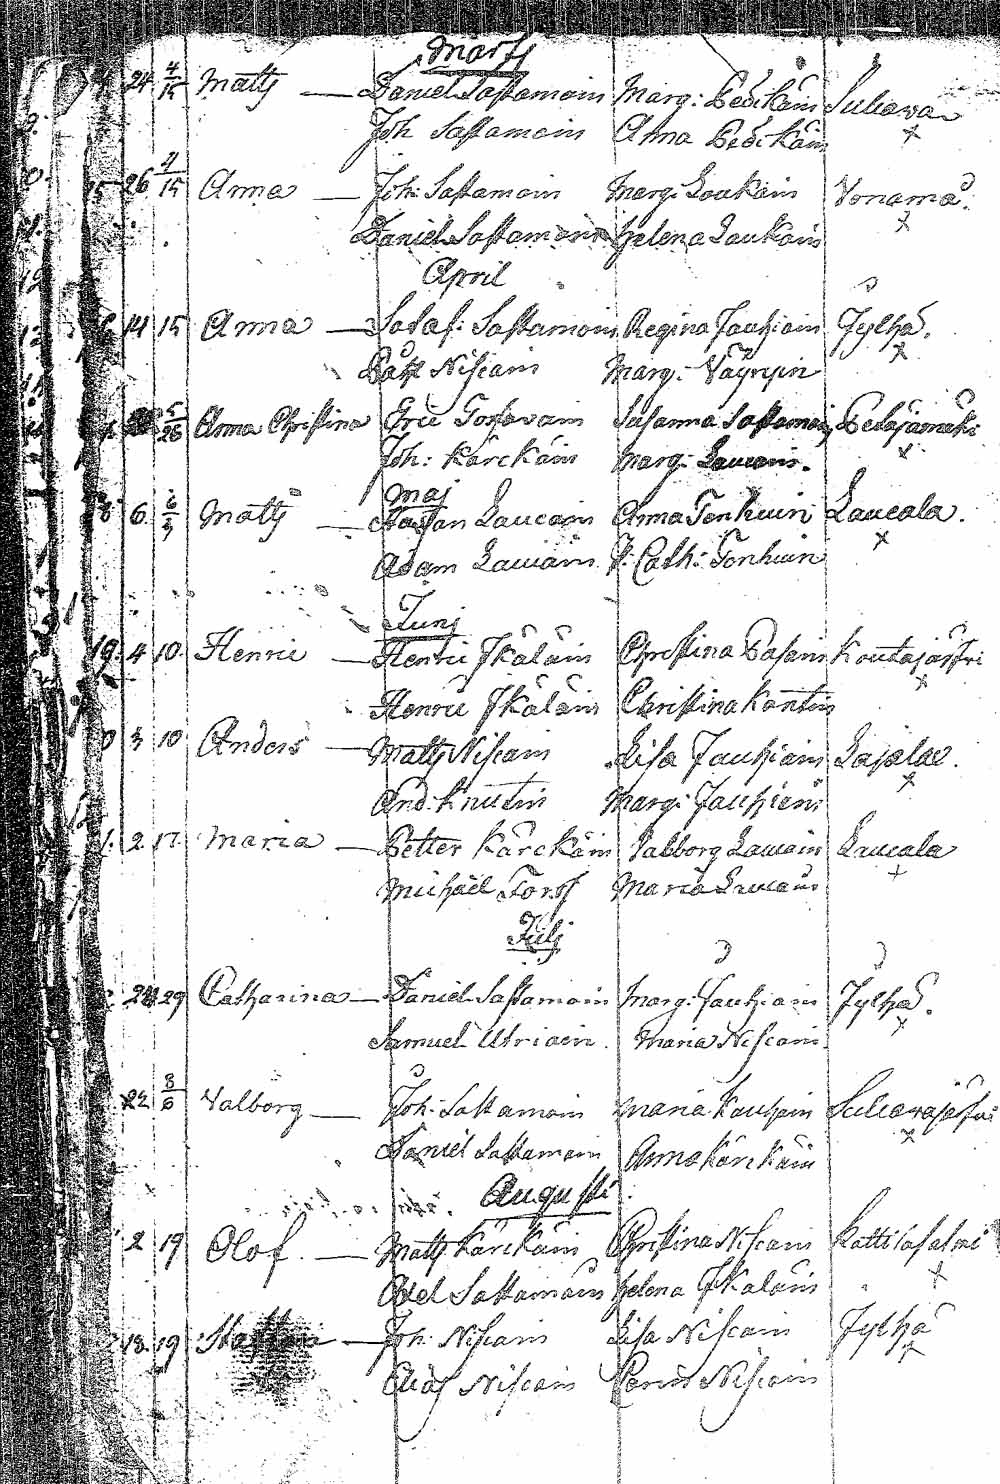 Marts
24 4/15 Matts — Daniel Sastamoin Marg: Pedikäin Sulcava
Joh Sastamoin Anna Pedikäin
15 26 4/15 Anna — Joh: Sastamoin Marg: Loukain Vonama
Daniel Sastamoin Helena Laukain
April
14 15 Anna — Sataf: Sastamoin Regina Jauhiain Jylhä.
Påhl Niscain Marg: Väynyin
5/26 Anna Christina Eric Torfvain Susanna Sastamoin Petäjämäki
Joh: Kärckäin Marg: Laucain.
Maj
8 6 6/7 Matts — Staffan Laucain Anna Tenhuin Laucala.
Adam Laucain Cath: Tenhuin
Junj
19. 4 10. Henric — Henric Ikäläin Christina Pasain Koutajärfvi
Henric Ikäläin Christina Kontin
3 10 Anders — Matts Niscain Lisa Jauhiain
And: Knutin Marg: Jauhiain
2. 17. Maria — Petter Kärckäin Valborg Laucain Laucala
Michäel Torsf Maria Laucain
Julj
24 29 Catharina — Daniel Sastamoin Marg: Jauhiain Jylhä.
Samuel Utriain. Maria Niscain.
22 8/6 Valborg — Joh: Sastamoin Maria Kauhain
Daniel Sastamoin Anna Kärckäin
Augusti
2 19 Olof. — Matts Kärckäin Christina Niscain Kattilasalmi
Abel Sastamoin Helena Ikäläin
18. 19 — Joh: Niscain Lisa Niscain Jylhä
Elias Niscain Carin Niscain